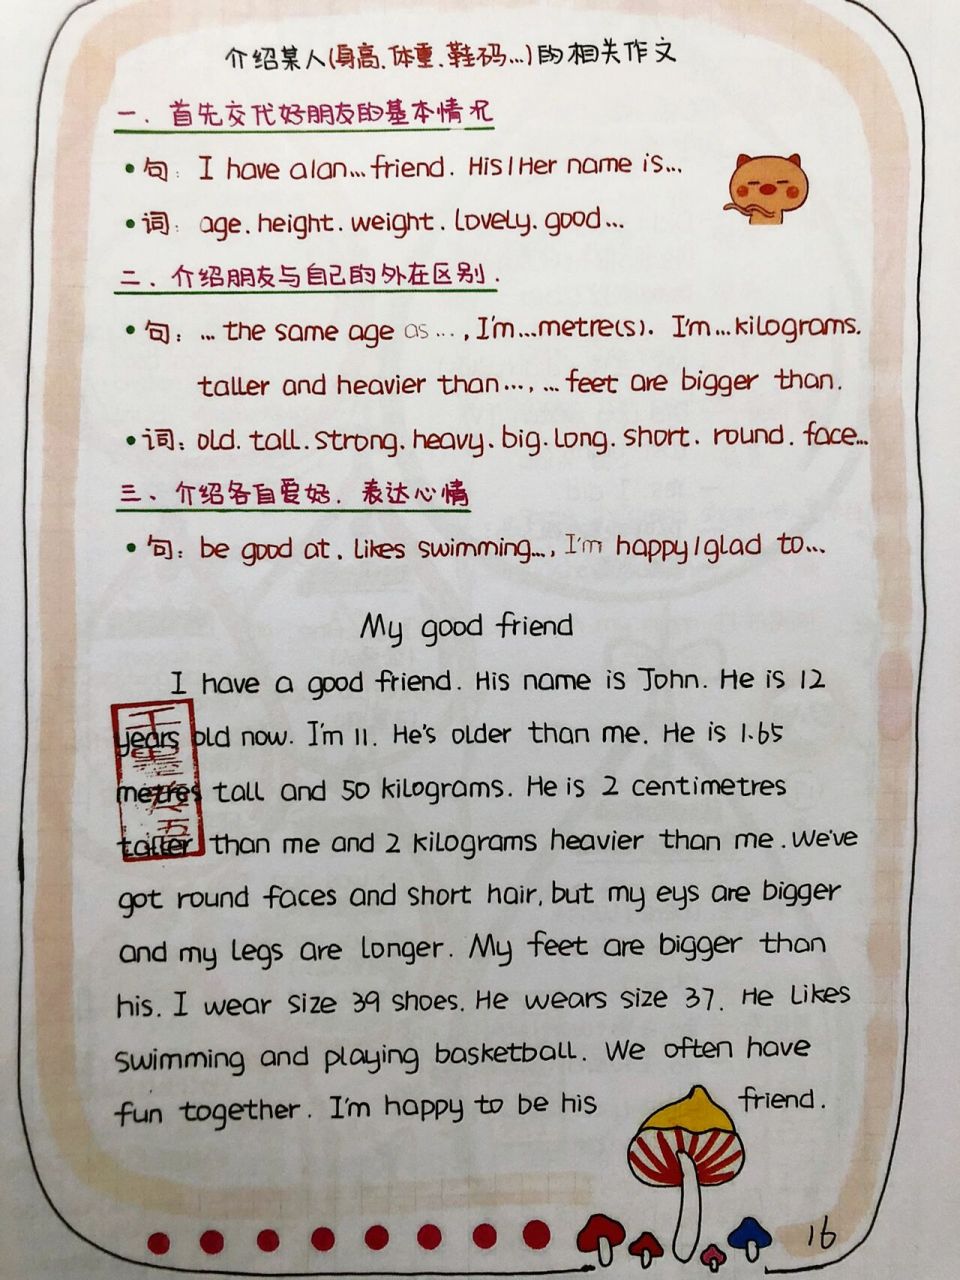 介绍某人(身高、体重、鞋码...)的相关作文
一、首先交代好朋友的基本情况
• 句: I have a/an... friend. His/Her name is...
• 词: age. height. weight. lovely. good...
二、介绍朋友与自己的外在区别.
• 句: ... the same age as ..., I'm...metre(s). I'm...kilograms.
taller and heavier than..., ... feet are bigger than.
• 词: old. tall. strong. heavy. big. long. short. round. face...
三、介绍各自爱好. 表达心情
• 句: be good at. likes swimming..., I'm happy/glad to...
My good friend
I have a good friend. His name is John. He is 12
years old now. I'm 11. He's older than me. He is 1.65
metres tall and 50 kilograms. He is 2 centimetres
taller than me and 2 kilograms heavier than me. We've
got round faces and short hair, but my eys are bigger
and my legs are longer. My feet are bigger than
his. I wear size 39 shoes. He wears size 37. He likes
swimming and playing basketball. We often have
fun together. I'm happy to be his friend.
16